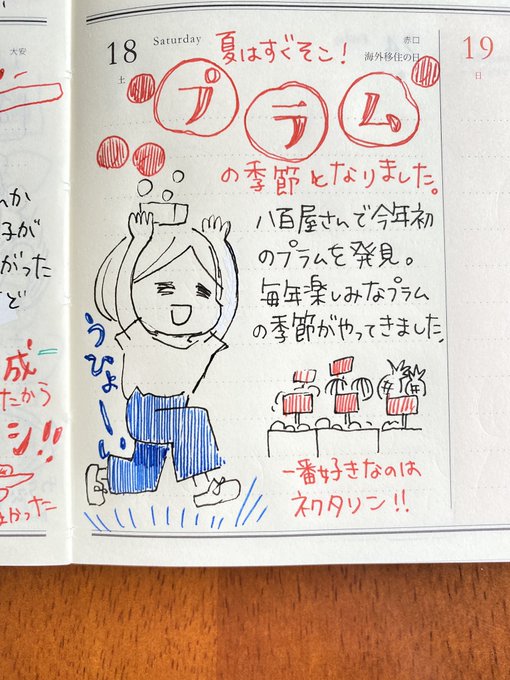 大安
18 Saturday
土
赤口
海外移住の日
19
日
夏はすぐそこ!
プラム
の季節となりました。
八百屋さんで今年初
のプラムを発見。
毎年楽しみなプラム
の季節がやってきました。
うひょーい
一番好きなのは
ネクタリン!!
んか
子が
がった
ど
成
たから
シ!!
かった